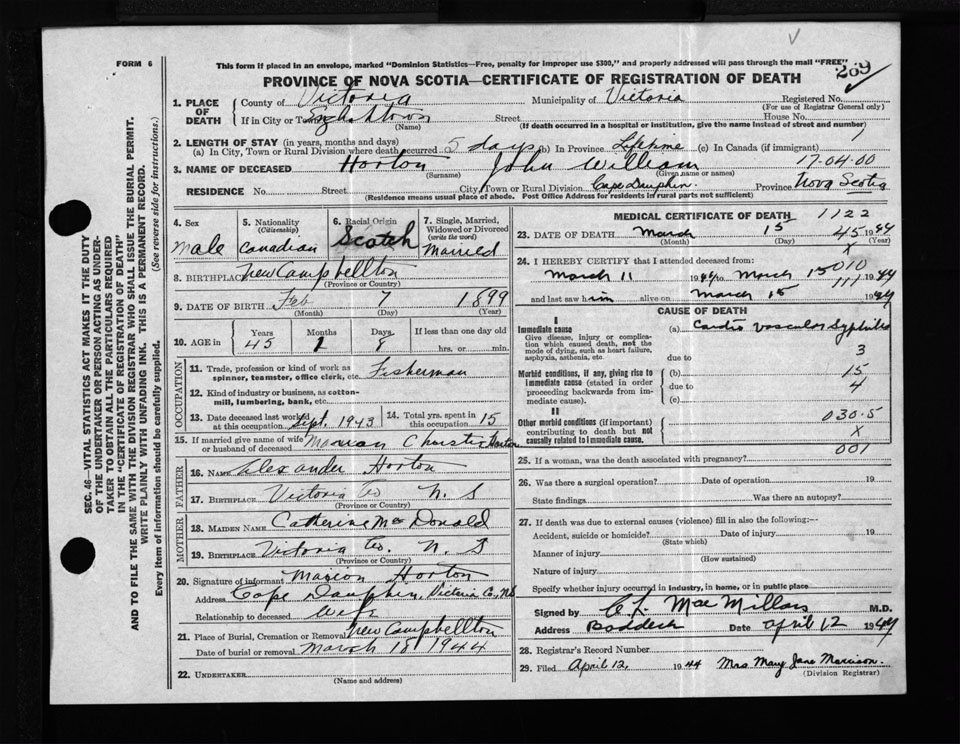 FORM 6
This form if placed in an envelope, marked "Dominion Statistics—Free, penalty for improper use $300," and properly addressed will pass through the mail "FREE"
PROVINCE OF NOVA SCOTIA—CERTIFICATE OF REGISTRATION OF DEATH
269
1. PLACE OF DEATH County of Victoria Municipality of Victoria Registered No.
(For use of Registrar General only)
If in City or Town Street House No.
(Name) (If death occurred in a hospital or institution, give the name instead of street and number)
2. LENGTH OF STAY (in years, months and days)
(a) In City, Town or Rural Division where death occurred 5 days (b) In Province Lifetime (c) In Canada (if immigrant)
3. NAME OF DECEASED Horton John William 17-04-00
(Surname) (Given name or names)
RESIDENCE No. Street City, Town or Rural Division Cape Dauphin Province Nova Scotia
(Residence means usual place of abode. Post Office Address for residents in rural parts not sufficient)
SEC. 46—VITAL STATISTICS ACT MAKES IT THE DUTY
OF THE UNDERTAKER OR PERSON ACTING AS UNDER-
TAKER TO OBTAIN ALL THE PARTICULARS REQUIRED
IN THE "CERTIFICATE OF REGISTRATION OF DEATH"
AND TO FILE THE SAME WITH THE DIVISION REGISTRAR WHO SHALL ISSUE THE BURIAL PERMIT.
WRITE PLAINLY WITH UNFADING INK. THIS IS A PERMANENT RECORD.
Every item of information should be carefully supplied. (See reverse side for instructions.)
4. Sex
Male
5. Nationality
(Citizenship)
Canadian
6. Racial Origin
Scotch
7. Single, Married,
Widowed or Divorced
(write the word)
Married
8. BIRTHPLACE New Campbellton
(Province or Country)
9. DATE OF BIRTH Feb 7 1899
(Month) (Day) (Year)
10. AGE in Years Months Days If less than one day old
45 1 8 hrs. or min.
OCCUPATION
11. Trade, profession or kind of work as
spinner, teamster, office clerk, etc. Fisherman
12. Kind of industry or business, as cotton-
mill, lumbering, bank, etc.
13. Date deceased last worked
at this occupation Sept. 1943
14. Total yrs. spent in
this occupation 15
15. If married give name of wife
or husband of deceased Marion Christie Horton
FATHER
16. NAME Alexander Horton
17. BIRTHPLACE Victoria Co N S
(Province or Country)
MOTHER
18. MAIDEN NAME Catherine McDonald
19. BIRTHPLACE Victoria Co. N. S
(Province or Country)
20. Signature of informant Marion Horton
Address Cape Dauphin, Victoria Co., N.S
Relationship to deceased Wife
21. Place of Burial, Cremation or Removal New Campbellton
Date of burial or removal March 18 1944
22. UNDERTAKER
(Name and address)
MEDICAL CERTIFICATE OF DEATH 1122
23. DATE OF DEATH March 15 45 1944
(Month) (Day) (Year)
x
24. I HEREBY CERTIFY that I attended deceased from:
010
March 11 1944 to March 15 1944
111
and last saw him alive on March 15 1944
CAUSE OF DEATH
I
Immediate cause (a) Cardio vascular Syphilis
Give disease, injury or complica-
tion which caused death, not the
mode of dying, such as heart failure,
asphyxia, asthenia, etc.
due to 3
Morbid conditions, if any, giving rise to
immediate cause (stated in order
proceeding backwards from im-
mediate cause).
(b) 15
due to 4
(c)
II
Other morbid conditions (if important)
contributing to death but not
causally related to immediate cause.
030-5
x
001
25. If a woman, was the death associated with pregnancy?
26. Was there a surgical operation? Date of operation 19
State findings Was there an autopsy?
27. If death was due to external causes (violence) fill in also the following:—
Accident, suicide or homicide? Date of injury 19
(State which)
Manner of injury
(How sustained)
Nature of injury
Specify whether injury occurred in industry, in home, or in public place
Signed by C. L. MacMillan M.D.
Address Baddeck Date April 12 1944
28. Registrar's Record Number
29. Filed April 12, 1944 Mrs. Mary Jane Morrison.
(Division Registrar)